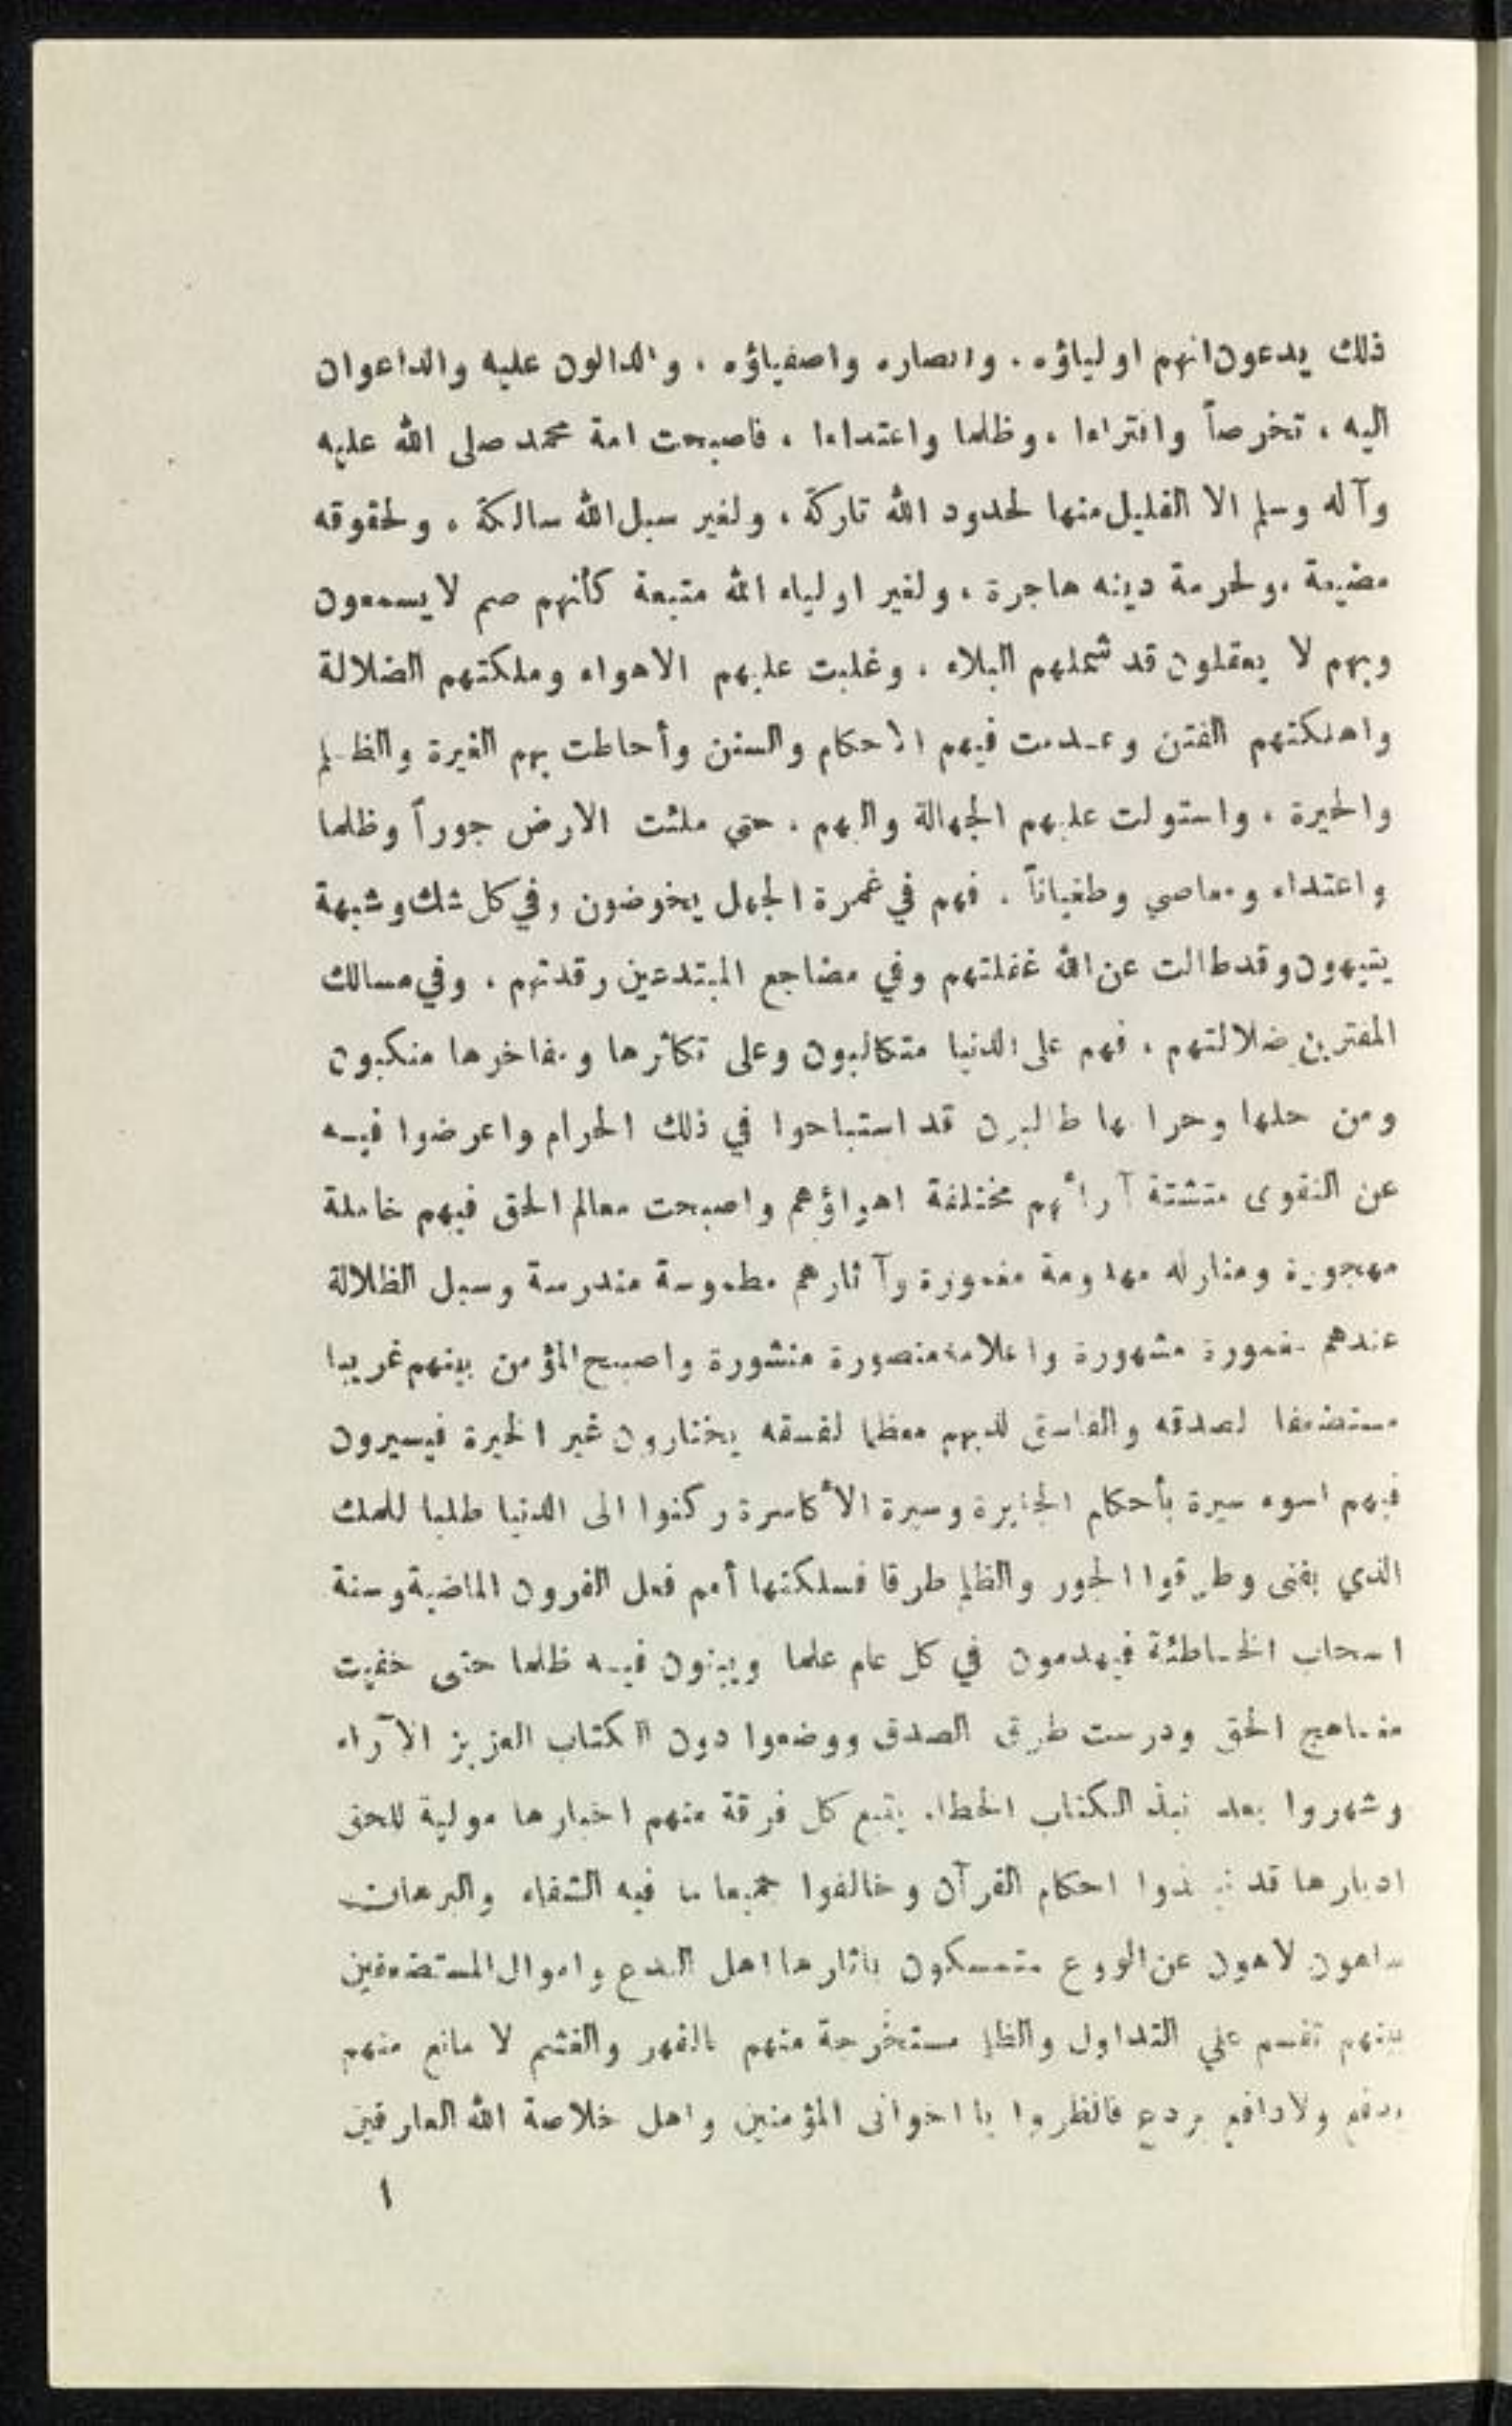 ذلك يدعون انهم اولياؤه . وانصاره واصفياؤه ، والدالون عليه والداعوان
اليه ، تخرصاً وافتراءا ، وظلما واعتداءا ، فاصبحت امة محمد صلى الله عليه
وآله وسلم الا القليل منها لحدود الله تاركة ، ولغير سبل الله سالكة ، ولحقوقه
مضيعة ، ولحرمة دينه هاجرة ، ولغير اولياء الله متبعة كأنهم صم لا يسمعون
وبهم لا يعقلون قد شملهم البلاء ، وغلبت عليهم الاهواء وملكتهم الضلالة
واهلكتهم الفتن وعدمت فيهم الاحكام والسنن وأحاطت بهم الغيرة والظلم
والحيرة ، واستولت عليهم الجهالة والبهم . حتى ملئت الارض جوراً وظلما
واعتداء ومعاصي وطغياناً . فهم في غمرة الجهل يخوضون وفي كل شك وشبهة
يتيهون وقد طالت عن الله غفلتهم وفي مضاجع المبتدعين رقدتهم ، وفي مسالك
المفترين ضلالتهم ، فهم على الدنيا متكالبون وعلى تكاثرها وبفاخرها منكبون
ومن حلها وحرامها طالبون قد استباحوا في ذلك الحرام واعرضوا فيه
عن التقوى متشتة آرائهم مختلفة اهواؤهم واصبحت معالم الحق فيهم خاملة
مهجورة ومنارله مهدومة مغمورة وآثارهم مطموسة مندرسة وسبل الظلالة
عندهم مغمورة مشهورة واعلامه منصورة منشورة واصبح المؤمن بينهم غريبا
مستضعفا لصدقه والفاسق لديهم معظما لفسقه يختارون غير الخيرة فيسيرون
فيهم اسوء سيرة بأحكام الجبايرة وسيرة الأكاسرة ركنوا الى الدنيا طلبا للملك
الذي يفنى وطرقوا الجور والظلم طرقا فسلكتها أمم فعل القرون الماضية وسنة
اصحاب الخاطئة فيهدمون في كل عام علما ويبنون فيه ظلما حتى خفيت
مناهج الحق ودرست طرق الصدق ووضعوا دون الكتاب العزيز الآراء
وشهروا بعد نبذ الكتاب الخطاء يتبع كل فرقة منهم اخبارها مولية للحق
ادبارها قد نبذوا احكام القرآن وخالفوا جميعا ما فيه الشفاء والبرهان
ساهون لاهون عن الووع متمسكون باثارها اهل البدع واموال المستضعفين
بينهم تقسم علي التداول والظلم مستخرجة منهم بالقهر والغشم لا مانع منهم
يدفع ولا دافع يردع فانظروا يا اخوانى المؤمنين واهل خلاصة الله العارفين
١